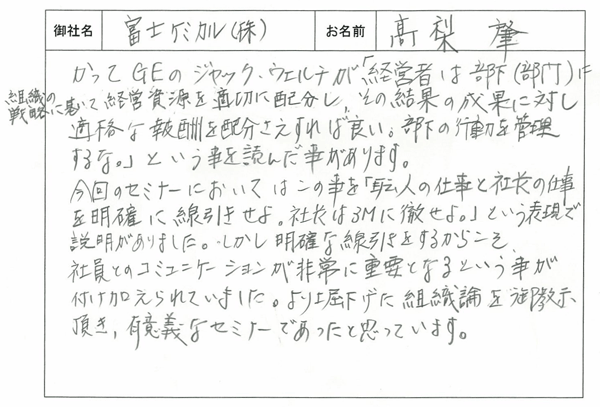 御社名 富士ケミカル(株) お名前 髙梨 肇
かつてGEのジャック・ウェルチが「経営者は部下(部門)に
組織の戦略に基いて経営資源を適切に配分し、その結果の成果に対し
適格な報酬を配分さえすれば良い。部下の行動を管理
するな。」という事を読んだ事があります。
今回のセミナーにおいてはこの事を「職人の仕事と社長の仕事
を明確に線引きせよ。社長は3Mに徹せよ。」という表現で
説明がありました。しかし明確な線引きをするからこそ、
社員とのコミュニケーションが非常に重要となるという事が
付け加えられていました。より掘下げた組織論を御教示
頂き、有意義なセミナーであったと思っています。